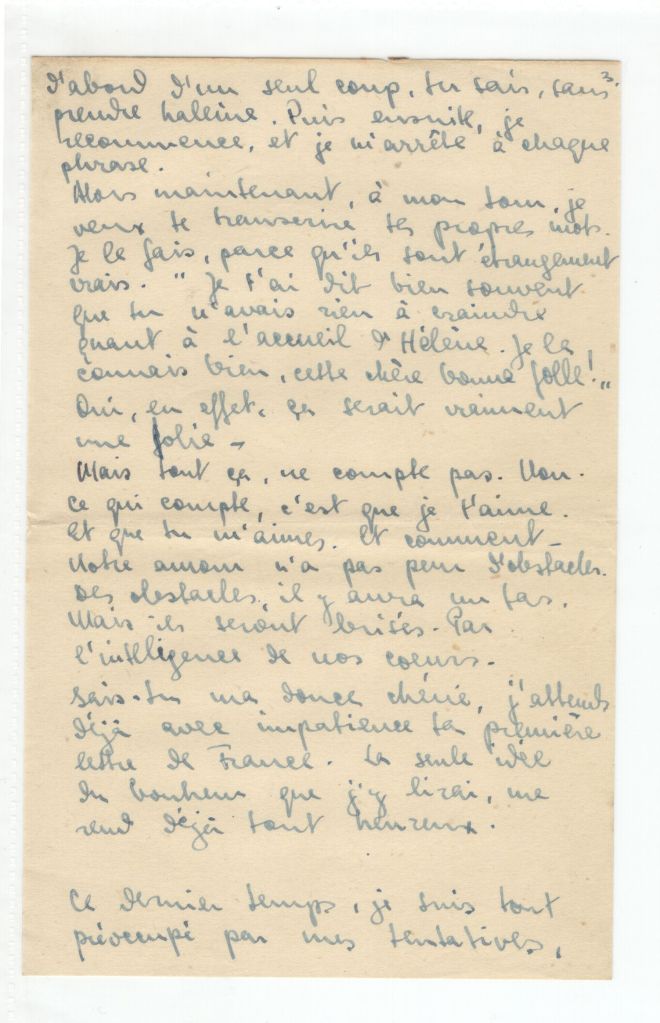 3.
d'abord d'un seul coup, tu sais, sans
prendre haleine. Puis ensuite, je
recommence, et je m'arrête à chaque
phrase.
Alors maintenant, à mon tour, je
veux te transcrire tes propres mots.
Je le fais, parce qu'ils sont étrangement
vrais. " Je t'ai dit bien souvent
que tu n'avais rien à craindre
quant à l'accueil d'Hélène. Je la
connais bien, cette chère bonne folle! "
Oui, en effet, ça serait vraiment
une folie –
Mais tout ça, ne compte pas. Non.
Ce qui compte, c'est que je t'aime.
Et que tu m'aimes. Et comment –
Notre amour n'a pas peur d'obstacles.
Des obstacles, il y aura un tas.
Mais ils seront brisés. Par
l'intelligence de nos coeurs.
Sais-tu ma douce chérie, j'attends
déjà avec impatience ta première
lettre de France. La seule idée
du bonheur que j'y lirai, me
rend déjà tout heureux.
Ce dernier temps, je suis tout
préoccupé par mes tentatives,